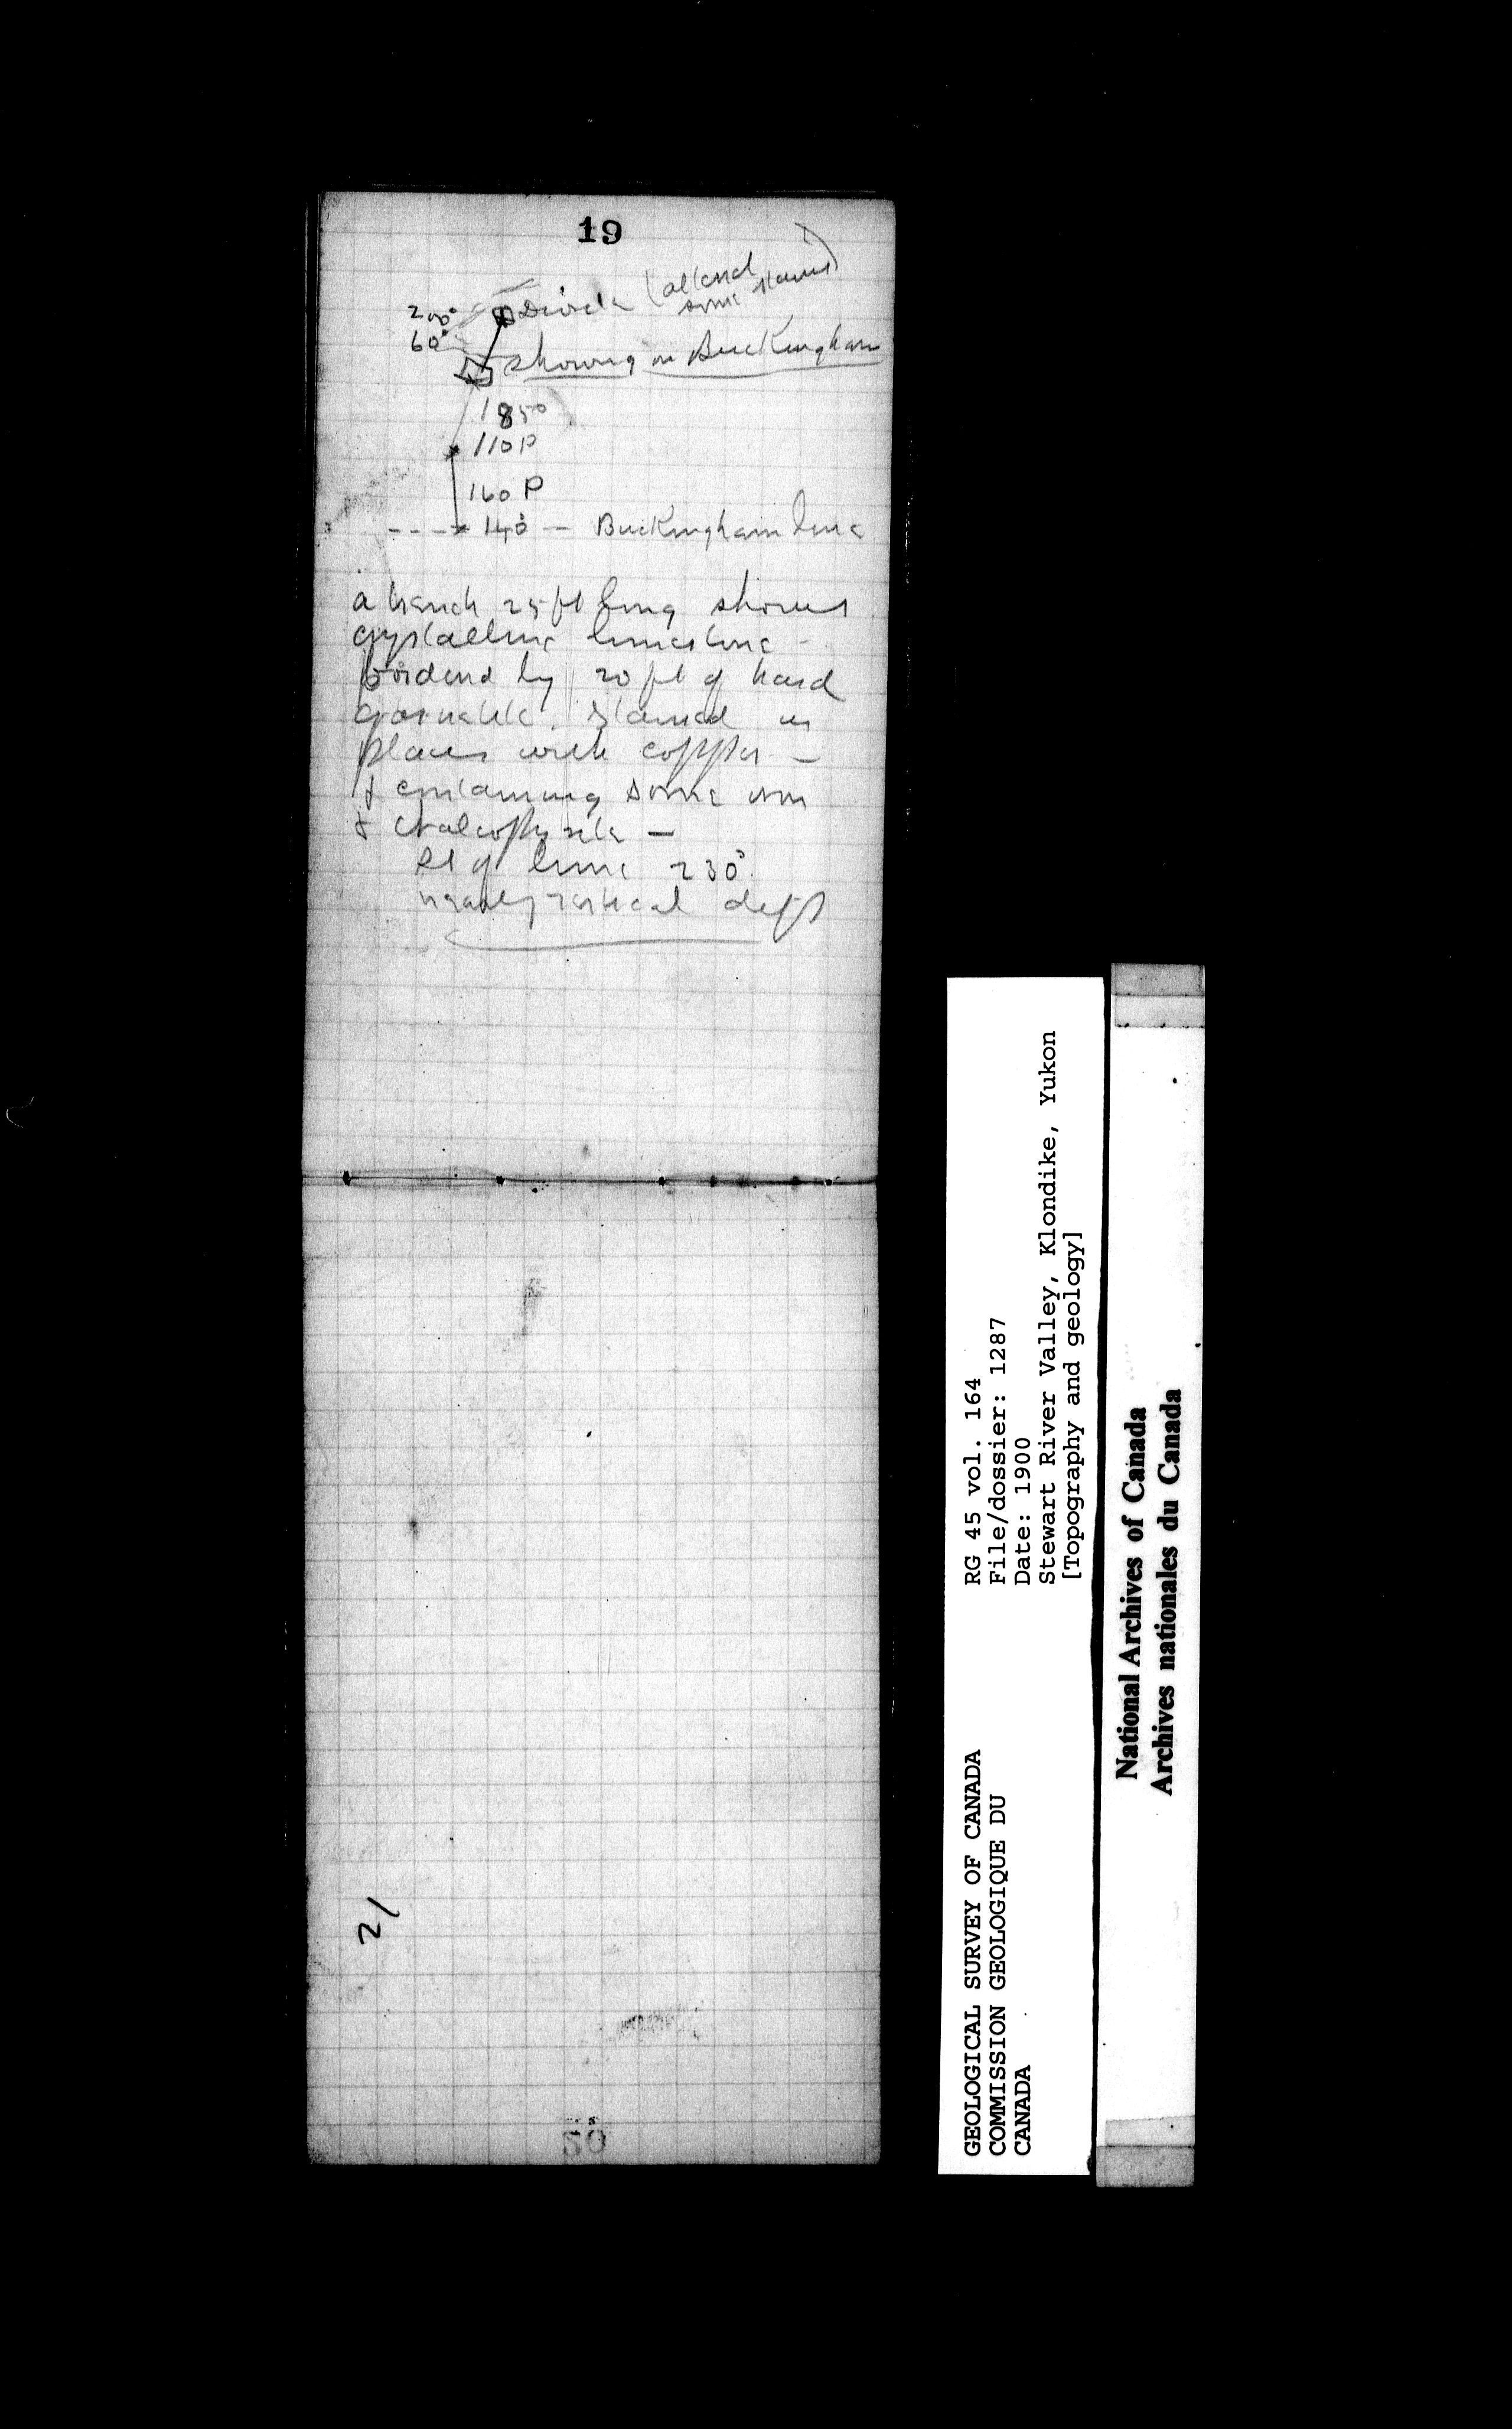 19
200°
60°
showing on Buckingham
185°
110 P
160 P
140 — Buckingham line
a trench 25 ft long shows
crystalline limestone -
bordered by 20 ft of hard
garnetite, stained in
places with copper —
& containing some iron
& chalcopyrite —
St of lime 230°
nearly vertical dip
21
20
GEOLOGICAL SURVEY OF CANADA
COMMISSION GEOLOGIQUE DU
CANADA
RG 45 vol. 164
File/dossier: 1287
Date: 1900
Stewart River Valley, Klondike, Yukon
[Topography and geology]
National Archives of Canada
Archives nationales du Canada